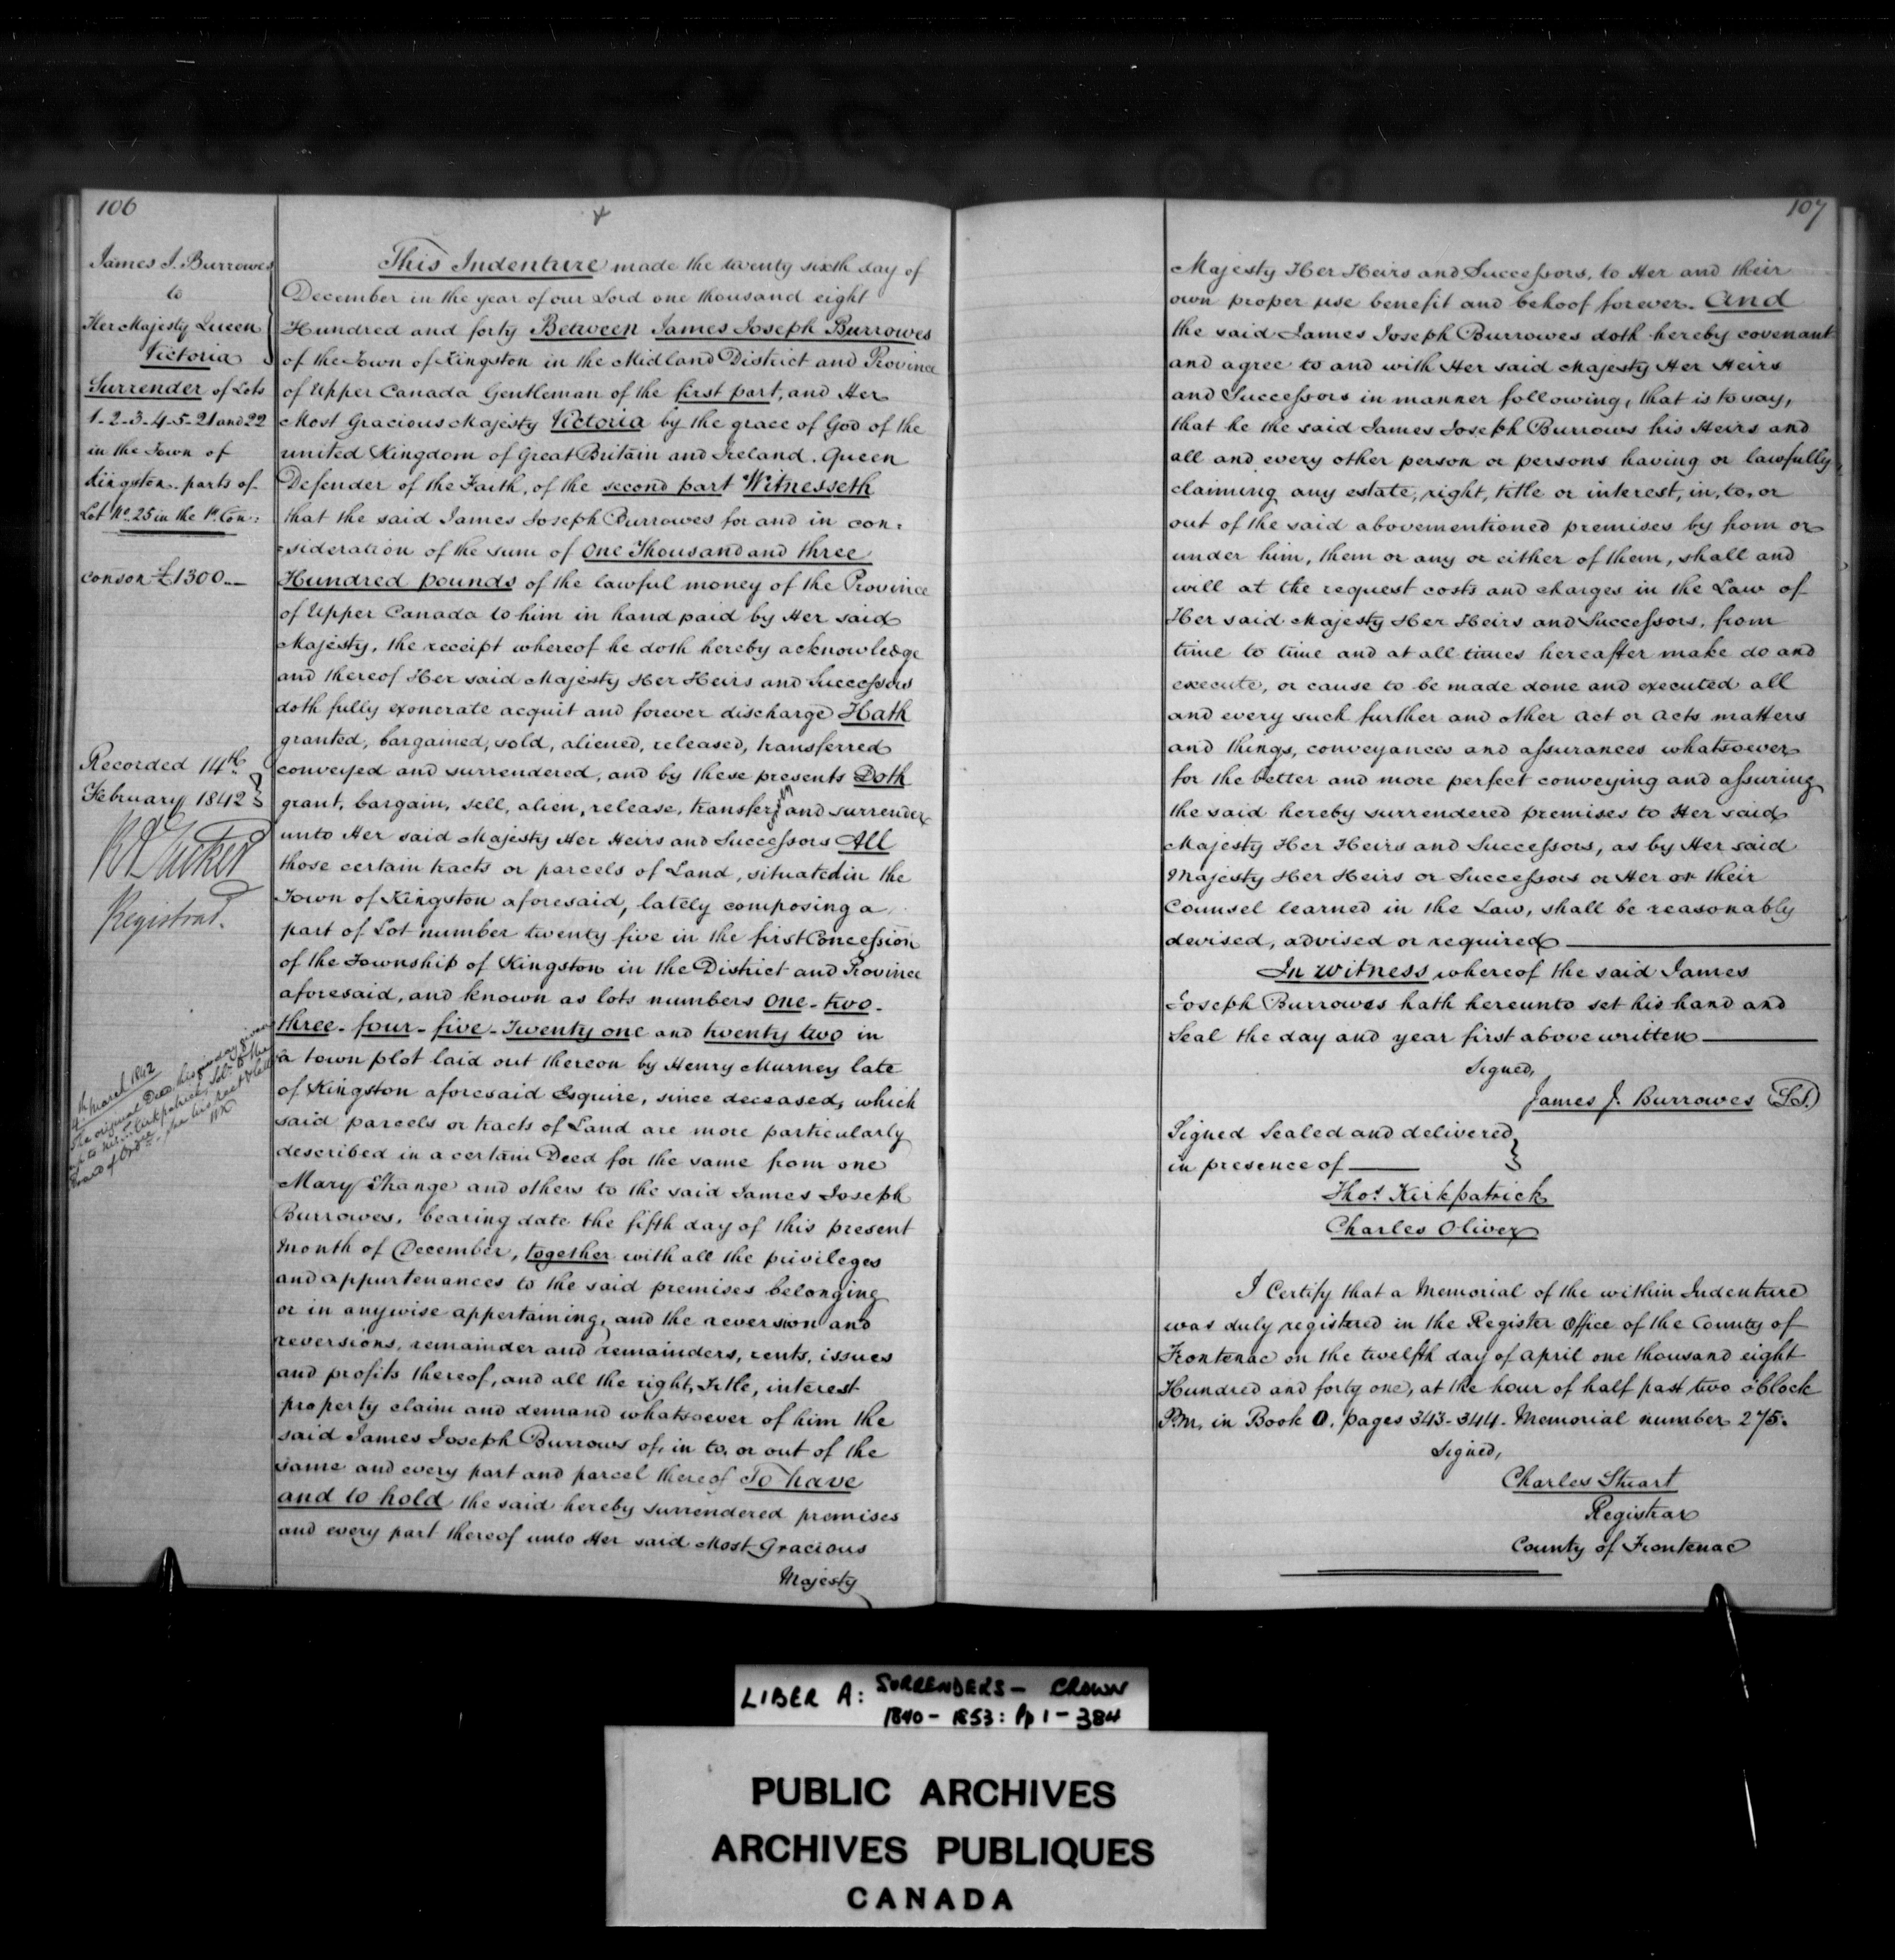 106
James J. Burrowes
to
Her Majesty Queen
Victoria
Surrender of Lots
1-2-3-4-5-21 and 22
in the Town of
Kingston. parts of
Lot No. 25 in the 1st Con:
conson £1300.—
Recorded 14th
February 1842
Registrar.
4th March 1842
The original Deed this day given
up to Mr. Kirkpatrick, Solr. to the
Board of Ordce.
This Indenture made the twenty sixth day of
December in the year of our Lord one thousand eight
Hundred and forty Between James Joseph Burrowes
of the Town of Kingston in the Midland District and Province
of Upper Canada Gentleman of the first part, and Her
Most Gracious Majesty Victoria by the grace of God of the
united Kingdom of Great Britain and Ireland. Queen
Defender of the Faith, of the second part Witnesseth
that the said James Joseph Burrowes for and in con:
:sideration of the sum of One Thousand and three
Hundred pounds of the lawful money of the Province
of Upper Canada to him in hand paid by Her said
Majesty, the receipt whereof he doth hereby acknowledge
and thereof Her said Majesty Her Heirs and Successors
doth fully exonerate acquit and forever discharge Hath
granted, bargained, sold, aliened, released, transferred
conveyed and surrendered, and by these presents Doth
grant, bargain, sell, alien, release, transfer, and surrender
unto Her said Majesty Her Heirs and Successors All
those certain tracts or parcels of Land, situated in the
Town of Kingston aforesaid, lately composing a
part of Lot number twenty five in the first Concession
of the Township of Kingston in the District and Province
aforesaid, and known as lots numbers One - two -
three - four - five - Twenty one and twenty two in
a town plot laid out thereon by Henry Murney late
of Kingston aforesaid Esquire, since deceased, which
said parcels or tracts of Land are more particularly
described in a certain Deed for the same from one
Mary Strange and others to the said James Joseph
Burrowes, bearing date the fifth day of this present
Month of December, together with all the privileges
and appurtenances to the said premises belonging
or in anywise appertaining, and the reversion and
reversions, remainder and remainders, rents, issues
and profits thereof, and all the right, Title, interest
property claim and demand whatsoever of him the
said James Joseph Burrows of, in to, or out of the
same and every part and parcel thereof To have
and to hold the said hereby surrendered premises
and every part thereof unto Her said Most Gracious
Majesty
107
Majesty Her Heirs and Successors, to Her and their
own proper use benefit and behoof forever. And
the said James Joseph Burrowes doth hereby covenant
and agree to and with Her said Majesty Her Heirs
and Successors in manner following, that is to say,
that he the said James Joseph Burrows his Heirs and
all and every other person or persons having or lawfully
claiming any estate, right, title or interest, in, to, or
out of the said abovementioned premises by from or
under him, them or any or either of them, shall and
will at the request costs and charges in the Law of
Her said Majesty Her Heirs and Successors, from
time to time and at all times hereafter make do and
execute, or cause to be made done and executed all
and every such further and other act or acts matters
and things, conveyances and assurances whatsoever
for the better and more perfect conveying and assuring
the said hereby surrendered premises to Her said
Majesty Her Heirs and Successors, as by Her said
Majesty Her Heirs or Successors or Her or their
Counsel learned in the Law, shall be reasonably
devised, advised or required
In witness whereof the said James
Joseph Burrowes hath hereunto set his hand and
Seal the day and year first above written
Signed,
James J. Burrowes L.S.
Signed Sealed and delivered
in presence of
Thos. Kirkpatrick
Charles Oliver
I Certify that a Memorial of the within Indenture
was duly registered in the Register Office of the County of
Frontenac on the twelfth day of April one thousand eight
Hundred and forty one, at the hour of half past two o'Clock
P.M. in Book O. pages 343-344. Memorial number 275.
Signed,
Charles Stuart
Registrar
County of Frontenac
LIBER A: SURRENDERS - CROWN
1840 - 1853: Pp 1 - 384
PUBLIC ARCHIVES
ARCHIVES PUBLIQUES
CANADA